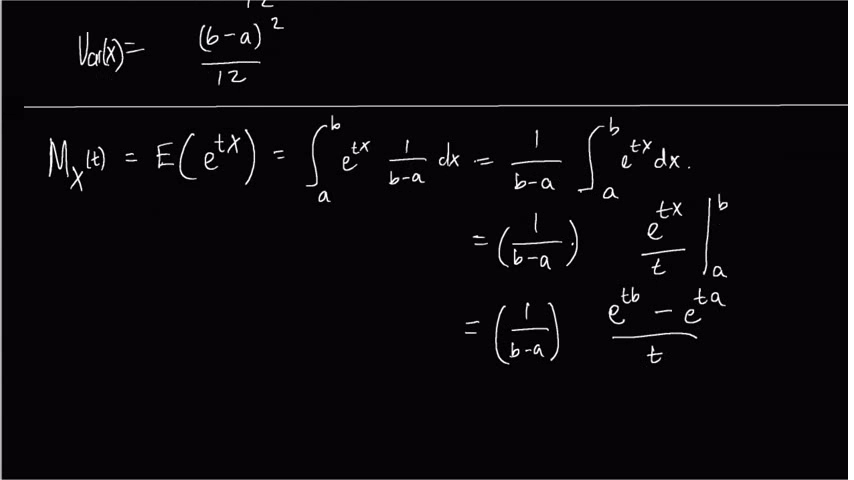 Var(x) = (b-a)^2 / 12
M_X(t) = E(e^{tX}) = ∫_a^b e^{tx} 1/(b-a) dx = 1/(b-a) ∫_a^b e^{tx} dx.
= (1/(b-a)) e^{tx}/t |_a^b
= (1/(b-a)) (e^{tb} - e^{ta})/t